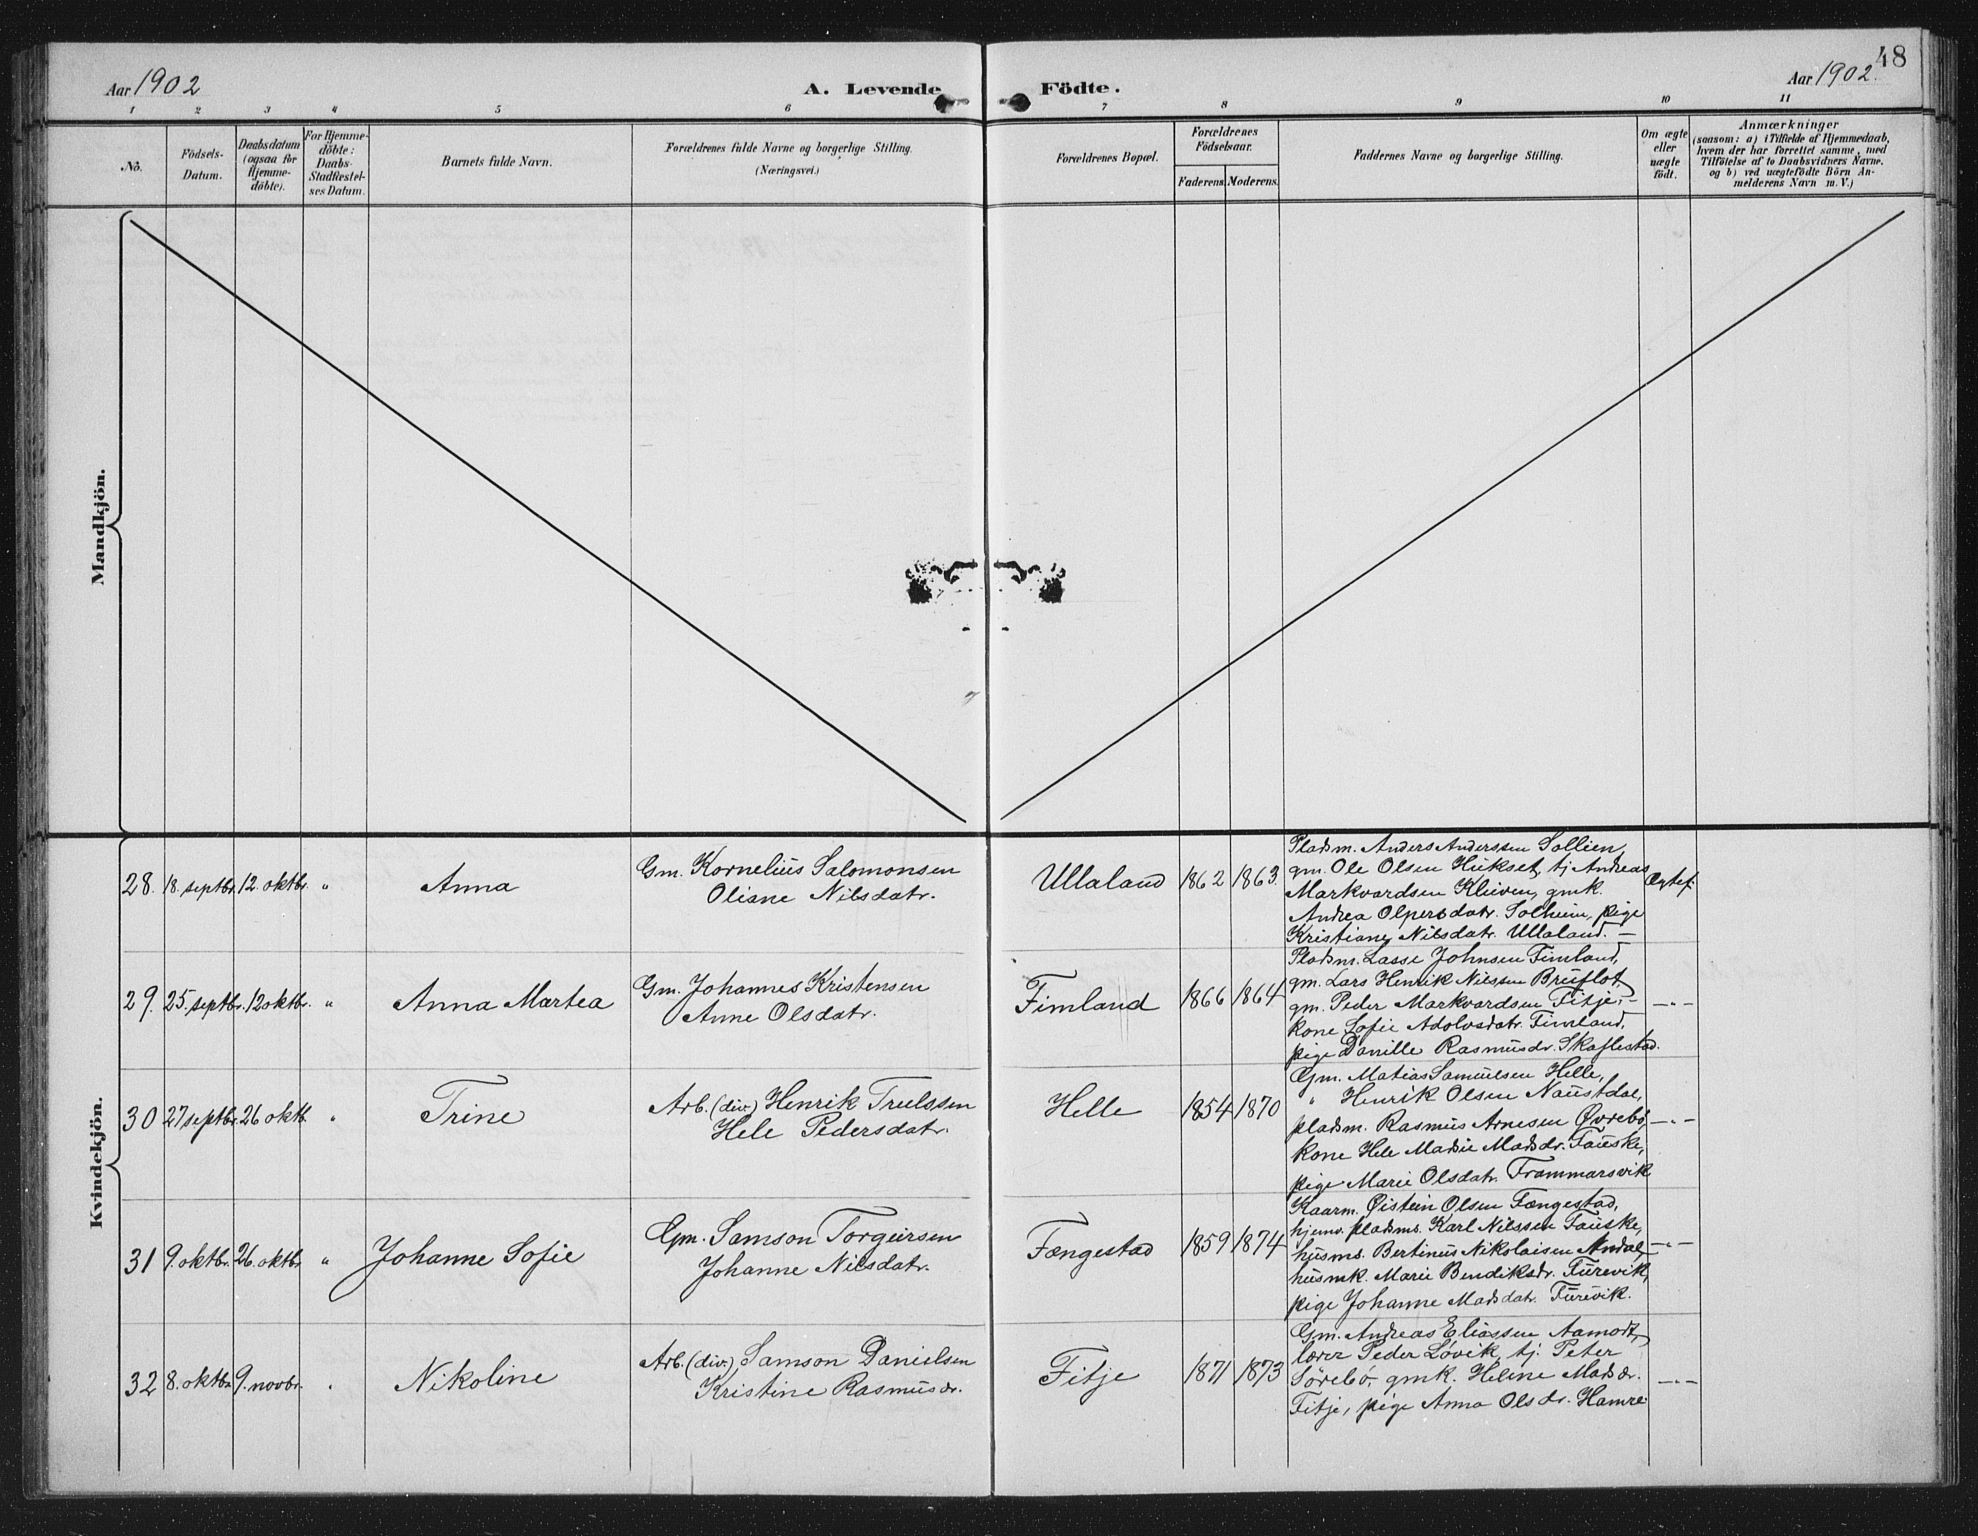 48
Aar 1902
A. Levende
Födte.
Aar 1902.
1 2 3 4 5 6 7 8 9 10 11
No.
Födsels-
Datum.
Daabsdatum
(ogsaa for
Hjemme-
döbte).
For Hjemme-
döbte:
Daabs-
Stadfestel-
ses Datum.
Barnets fulde Navn.
Forældrenes fulde Navne og borgerlige Stilling.
(Næringsvei.)
Forældrenes Bopæl.
Forældrenes
Födselsaar.
Faderens. Moderens.
Faddernes Navne og borgerlige Stilling.
Om ægte
eller
uægte
födt.
Anmærkninger
(saasom: a) i Tilfælde af Hjemmedaab,
hvem der har forrettet samme, med
Tilföielse af to Daabsvidners Navne.
og b) ved uægtefödte Börn An-
melderens Navn m. V.)
Mandkjön.
Kvindekjön.
28. 18. septbr. 12. oktbr. " Anna
Gm. Kornelius Salomonsen
Oliane Nilsdatr.
Ullaland 1862 1863.
Pladsm. Anders Anderssen Sollien,
gm. Ole Olsen Hukset, tj. Andreas
Markvardsen Kleiven, gmk.
Andrea Olpersdatr. Solheim, pige
Kristiane Nilsdatr. Ullaland. —
Ægtef.
29. 25. septbr. 12 oktbr. " Anna Martea
Gm. Johannes Kristensen
Anne Olsdatr.
Fimland 1866 1864
Pladsm. Lasse Johnsen Fimland,
gm. Lars Henrik Nilssen Bruflot,
gm. Peder Markvardsen Fitje, —
kone Sofie Adolvsdatr. Fimland,
pige Danille Rasmusdr. Skaflestad.
—"—
30 27 septbr. 26 oktb. " Trine
Arb. (div.) Henrik Trulssen
Hele Pedersdatr.
Helle 1854 1870
Gm. Matias Samuelsen Helle,
" Henrik Olsen Naustdal,
pladsm. Rasmus Arnesen Øvrebø,
kone Hele Madsdr. Fauske,
pige Marie Olsdatr. Frammarsvik
—"—
31 9. oktbr. 26. oktbr. " Johanne Sofie
Gm. Samson Torgeirsen
Johanne Nilsdatr.
Fængestad 1859 1874
Kaarm. Øistein Olsen Fængestad,
hjemv. pladsms. Karl Nilssen Fauske,
husms. Bertinus Nikolaisen Andal,
husmk. Marie Bendiksdr. Furevik,
pige Johanne Madsdatr. Furevik.
—"—
32 8. oktbr. 9. novbr. " Nikoline
Arb. (div.) Samson Danielsen
Kristine Rasmusdr.
Fitje 1871 1873
Gm. Andreas Eliassen Aamodt,
lærer Peder Løvik, tj. Peter
Sørebø, gmk. Heline Madsdr.
Fitje, pige Anna Olsdr. Hamre
—"—